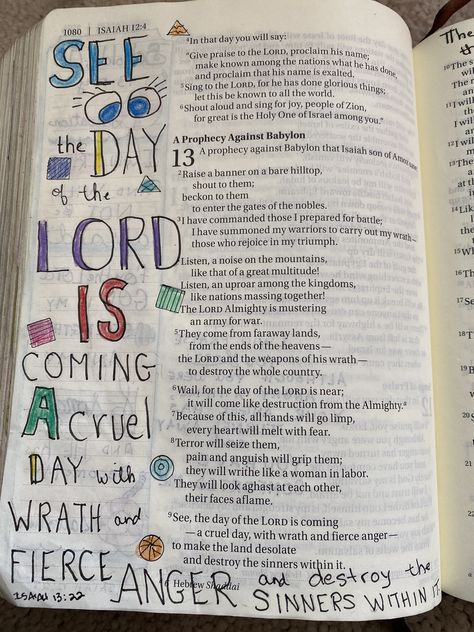 1080 | ISAIAH 12:4
SEE
the DAY
of the
LORD
IS
COMING
A cruel
DAY with
WRATH and
FIERCE
ANGER and destroy the
SINNERS WITHIN IT
ISAIAH 13:22
4In that day you will say:
"Give praise to the LORD, proclaim his name;
make known among the nations what he has done,
and proclaim that his name is exalted.
5Sing to the LORD, for he has done glorious things;
let this be known to all the world.
6Shout aloud and sing for joy, people of Zion,
for great is the Holy One of Israel among you."
A Prophecy Against Babylon
13 A prophecy against Babylon that Isaiah son of Amoz
2Raise a banner on a bare hilltop,
shout to them;
beckon to them
to enter the gates of the nobles.
3I have commanded those I prepared for battle;
I have summoned my warriors to carry out my wrath—
those who rejoice in my triumph.
Listen, a noise on the mountains,
like that of a great multitude!
Listen, an uproar among the kingdoms,
like nations massing together!
The LORD Almighty is mustering
an army for war.
5They come from faraway lands,
from the ends of the heavens—
the LORD and the weapons of his wrath—
to destroy the whole country.
6Wail, for the day of the LORD is near;
it will come like destruction from the Almighty.a
7Because of this, all hands will go limp,
every heart will melt with fear.
8Terror will seize them,
pain and anguish will grip them;
they will writhe like a woman in labor.
They will look aghast at each other,
their faces aflame.
9See, the day of the LORD is coming
—a cruel day, with wrath and fierce anger—
to make the land desolate
and destroy the sinners within it.
6 Hebrew Shaddai
The